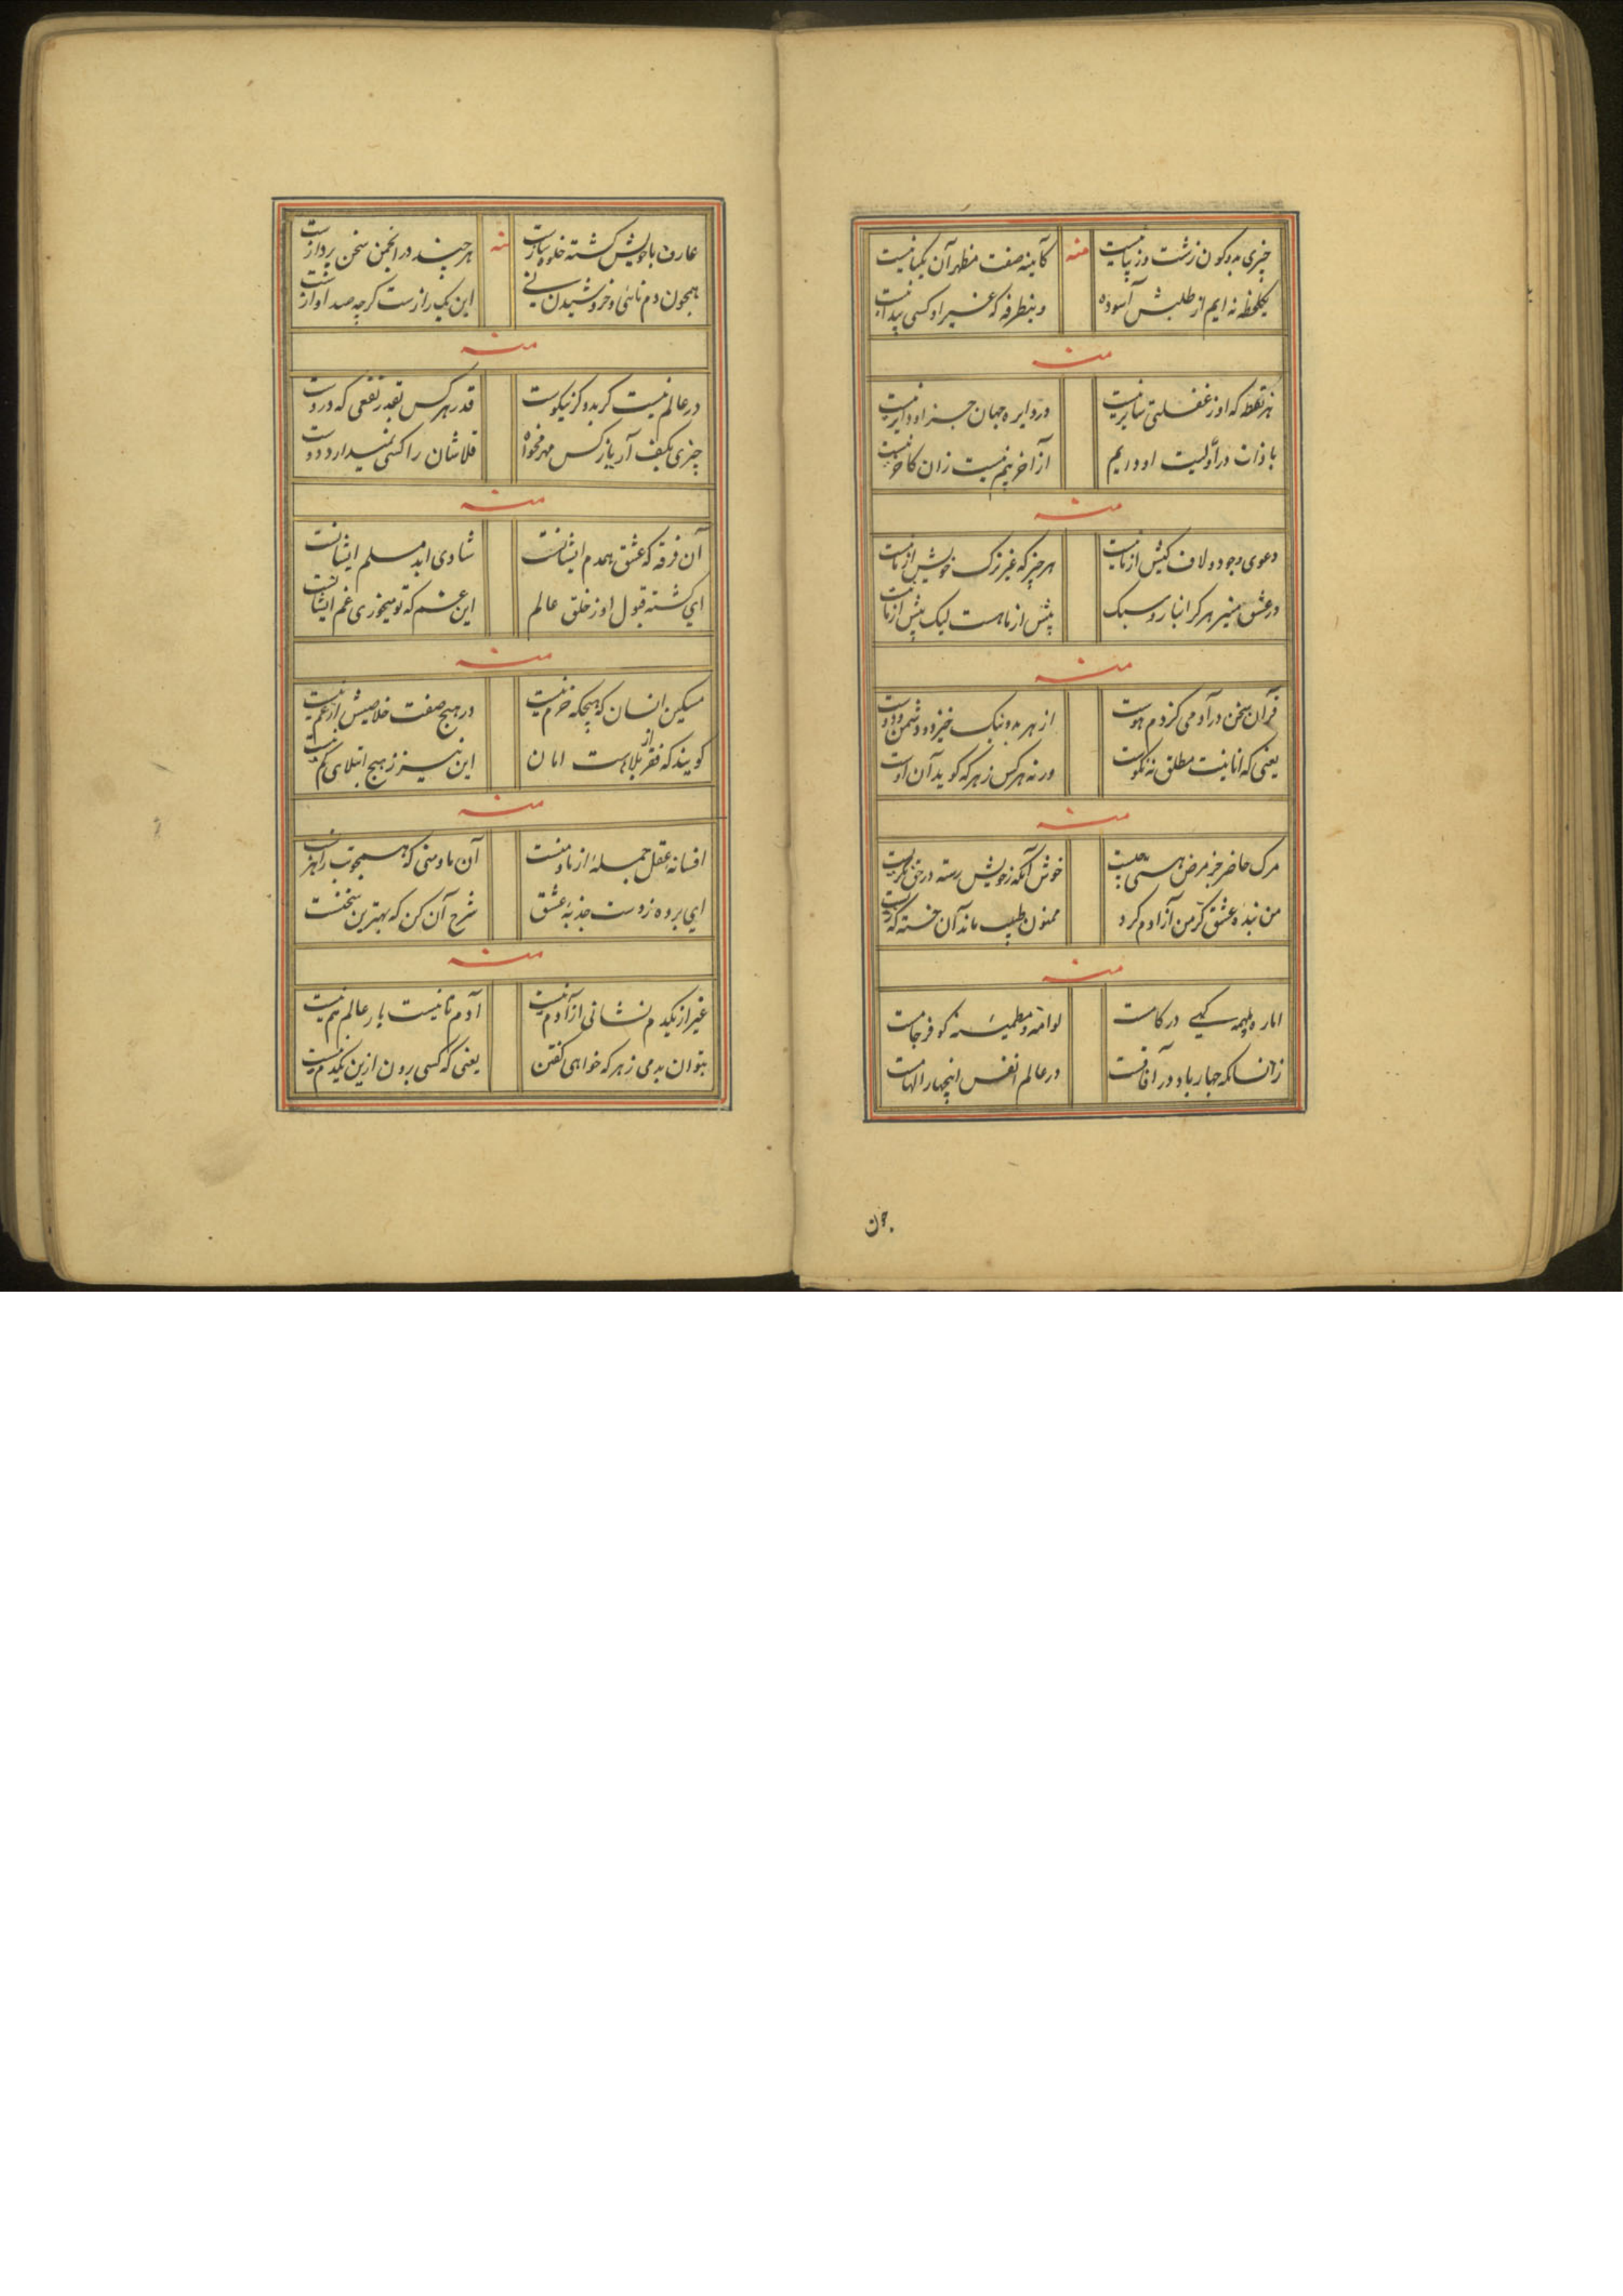 چیزی بدو کون زشت و زیبا نیست
کآیینه صفت مظهر آن یکتا نیست
منه
یکلحظه نه ایم از طلبش آسوده
وینطرفه که غیر او کسی پیدا نیست
منه
هر نقطه که او ز غفلتی سایر نیست
در دایره جهان جز او دایر نیست
با ذات در اولیت او دریم
از آخر نیم نیست زان کآخر نیست
منه
دعوی وجود و لاف کیش از ما نیست
هر چیز که غیر ترک خویش از ما نیست
در عشق منیر هر گرانبار و سبک
پیش از ما هست لیک بیش از ما نیست
منه
قرآن سخن در آدمی کز دم هوست
از هر بد و نیک خیزد و دشمن و دوست
یعنی که انانیت مطلق نه نکوست
ورنه هر کس ز هر که گوید آن اوست
منه
مرک حاضر جز مرض هستی نیست
خوش آنکه ز خویش رسته در حق نگریست
من بنده عشق کز من آزادم کرد
ممنون طبیب ماند آن خسته که زیست
منه
اماره و ملهمه کهی در کامست
لوامه و مطمئنه کو فرجامست
زانسانکه چهار باد در آفاقست
در عالم انفس اینچهار الهامست
چون
عارف با خویش کشته خلوت سازست
هر چند در انجمن سخن پردازست
منه
همچون دم نائی و خروشیدن نی
این یک رازست کرچه صد آوازست
منه
در عالم نیست کر بد و کر نیکوست
قدر هر کس بقدر نفعی که دروست
چیزی بکف آر یا ز کس مهر مخواه
قلاشان را کسی نمیدارد دوست
منه
آن فرقه که عشق همدم ایشانست
شادی ابد مسلم ایشانست
ای کشته قبول او ز خلق عالم
این غم که تو میخوری غم ایشانست
منه
مسکین انسان که هیچکه خرم نیست
در هیچ صفت خلاصیش از غم نیست
کویند که فقر از بلاهست امان
این نیز ز هیچ ابتلای کم نیست
منه
افسانه عقل جمله از ما و منست
آن ما و منی که همچو بت راهزنست
ای برده ز دست جذبه عشق
شرح آن کن که بهترین سخنست
منه
غیر از یکدم نشانی از آدم نیست
آدم تا نیست بار عالم هم نیست
بتوان بدمی ز هر که خواهی کفتن
یعنی که کسی برون ازین یکدم نیست